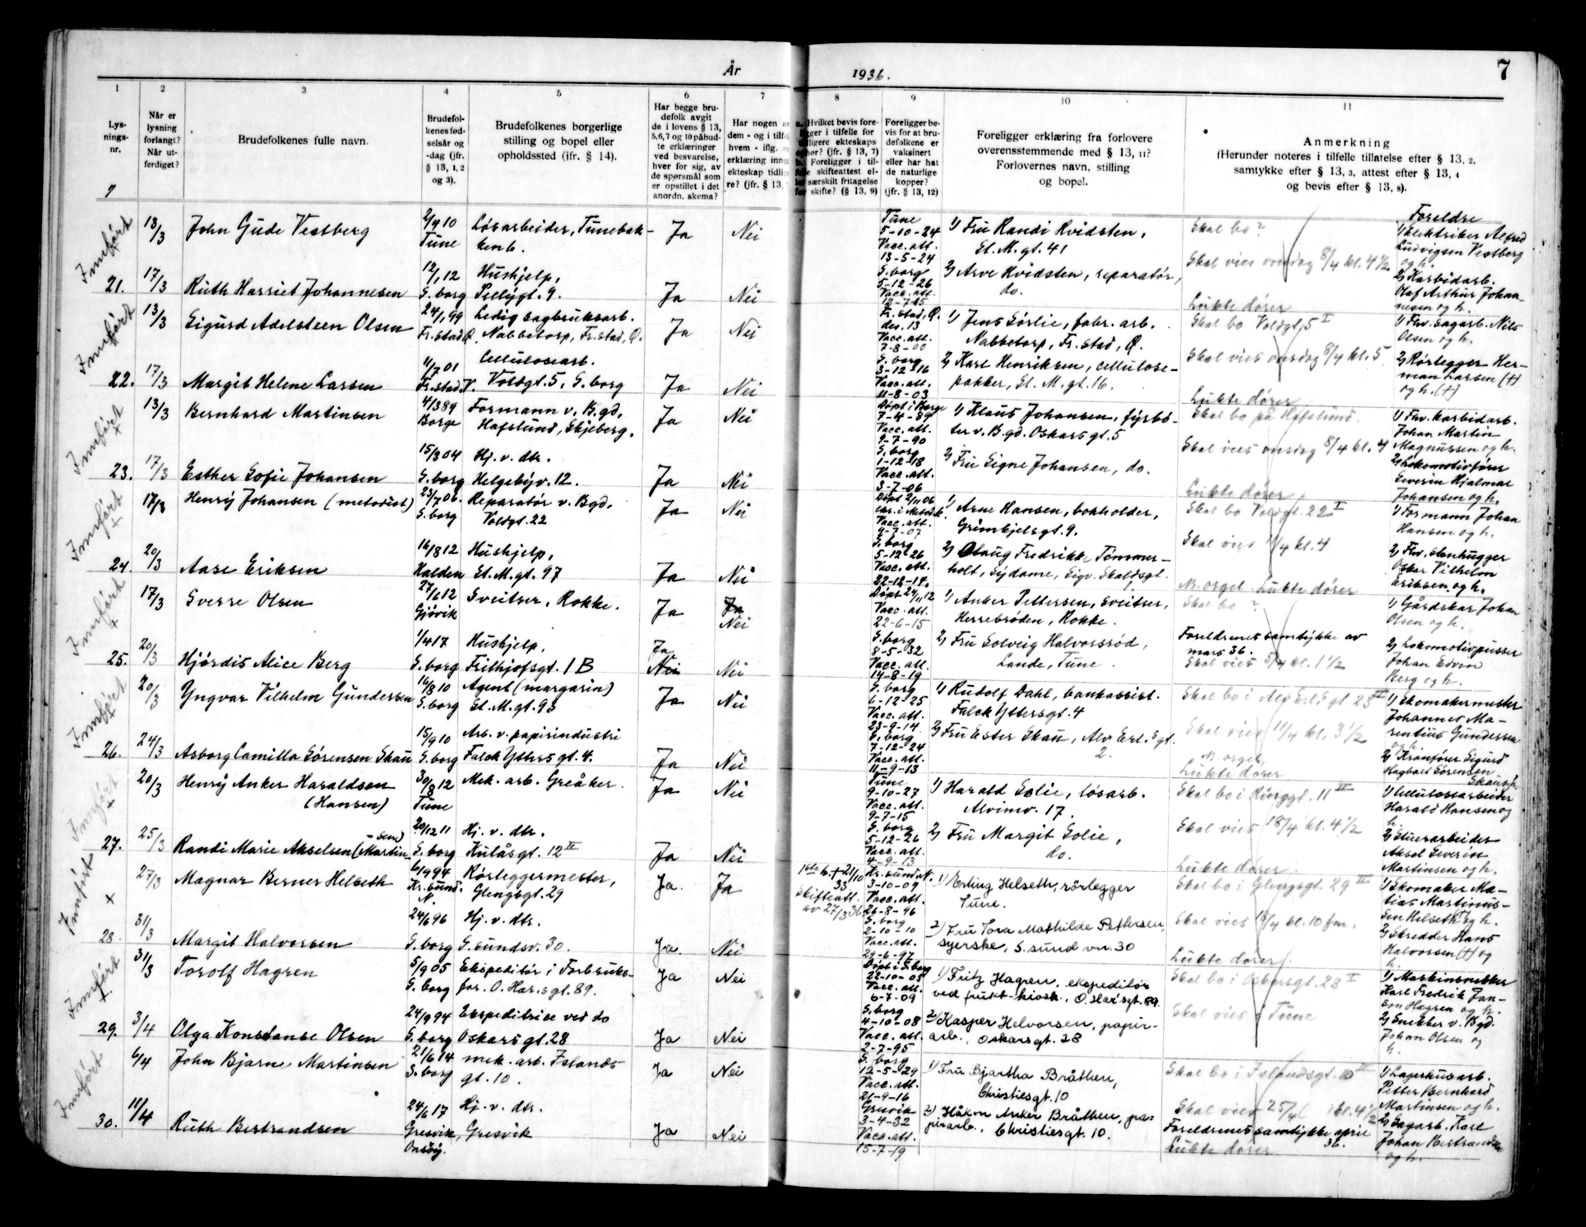 År 1936. 7
1 2 3 4 5 6 7 8 9 10 11
Lys-
nings-
nr.
Når er
lysning
forlangt?
Når ut-
ferdiget?
Brudefolkenes fulle navn.
Brudefol-
kenes fød-
selsår og
-dag (jfr.
§ 13, 1, 2
og 3).
Brudefolkenes borgerlige
stilling og bopel eller
opholdssted (ifr. § 14).
Har begge bru-
defolk avgit
de i lovens § 13,
5, 6, 7 og 10 påbud-
te erklæringer
ved besvarelse,
hver for sig, av
de spørsmål som
er opstillet i det
anordn. skema?
Har nogen
dem - og i tilf
hvem - iflg.
erklæring inn
ekteskap tidli
re? (jfr. § 13,
Hvilket bevis fore-
ligger i tilfelle for
tidligere ekteskaps
ophør? (jfr. § 13, 7)
Foreligger i til-
felle skifteattest el-
særskilt fritagelse
for skifte? (§ 13, 9)
Foreligger be-
vis for at bru-
defolkene er
vaksinert
eller har hat
de naturlige
kopper?
(jfr. § 13, 12)
Foreligger erklæring fra forlovere
overensstemmende med § 13, 11?
Forlovernes navn, stilling
og bopel.
Anmerkning
(Herunder noteres i tilfelle tillatelse efter § 13, 2,
samtykke efter § 13, 3, attest efter § 13, 4
og bevis efter § 13, 8).
Foreldre
Innført
21.
13/3 John Gude Vestberg
2/9 10
Tune
Løsarbeider, Tunebak-
kenb.
Ja Nei
Tune
5-10-24
Vacc. att.
13-5-24
1) Fru Randi Kvidsten,
St. M. gt. 41
Skal bo?
Skal vies onsdag 8/4 kl. 4 1/2
1) Elektriker Alfred
Ludvigsen Vestberg
og h.
17/3 Ruth Harriet Johannesen
S. borg
Hushjelp,
Pellygt. 9.
Ja Nei
S. borg
5-12-26
Vacc. att.
2) Arve Kvidsten, reparatør,
do.
Lukte dører
2) Karbidarb.
Olaf Arthur Johan-
nesen og h.
Innført
22.
13/3 Sigurd Adelsteen Olsen
24/1 99
Fr.stad Ø.
Ledig sagbruksarb.
Nabbetorp, Fr.stad, Ø.
Ja Nei
Fr. stad, Ø.
des. 13
Vacc. att.
7-8-00
1) Jens Sørlie, fabr. arb.
Nabbetorp, Fr. stad, Ø.
Skal bo Voldgt. 5 I
Skal vies onsdag 8/4 kl. 5
1) Fhv. sagarb. Nils
Olsen og h.
17/3 Margit Helene Larsen
4/7 01
Fr.stad V.
Cellulosearb.
Voldgt. 5, S. borg
Ja Nei
S. borg
3-12-16
Vacc. att.
11-8-03
2) Karl Henriksen, cellulose-
pakker, St. M. gt. 16.
Lukte dører
2) Rørlegger Her-
man Larsen (+)
og h. (+)
Innført
23.
13/3 Bernhard Martinsen
4/3 89
Borge
Formann v. B.gd,
Hafslund, Skjeberg.
Ja Nei
Døpt i Borge
7-4-89
Vacc. att.
9-7-90
1) Klaus Johansen, fyrbø-
ter v. B.gd. Oskarsgt. 5
Skal bo på Hafslund.
Skal vies onsdag 8/4 kl. 4
1) Fhv. karbidarb.
Johan Martin
Magnussen og h.
17/3 Esther Sofie Johansen
15/3 04
S. borg
Hj. v. dtr.
Helgebyv. 12.
Ja Nei
S. borg
1-12-18
Vacc. att.
3-7-06
2) Fru Signe Johansen, do.
Lukte dører
2) Lokomotivfører
Severin Hjalmar
Johansen og h.
Innført
24.
17/3 Henry Johansen (metodist)
23/7 06.
S. borg
Reparatør v. Bgd,
Voldgt. 22
Ja Nei
Døpt 2/11 06
Vacc. att.
4-7-07
1) Arne Hansen, bokholder,
Grimkjelsgt. 9.
Skal bo Voldgt. 22 I
Skal vies 11/4 kl. 4
1) Formann Johan
Hansen og h.
20/3 Aase Eriksen
16/8 12
Halden
Hushjelp,
St. M. gt. 97
Ja Nei
S. borg
5-12-26
Vacc. att.
2) Olaug Fredrikke Tømmer-
holt, Sydame, Sigv. Skaldspl.
M. orgel Lukte dører
2) Fhv. stenhugger
Oskar Vilhelm
Eriksen og h.
Innført
25.
17/3 Sverre Olsen
27/6 12
Gjøvik
Sveitser, Rokke.
Ja Ja
Nei
Døpt 24/11 12
Vacc. att.
22-6-15
1) Anker Pettersen, sveitser,
Herrebrøden, Rokke.
Skal bo?
Foreldrenes samtykke av
mars 36.
1) Gårdskar Johan
Olsen og h.
20/3 Hjørdis Alice Berg
1/4 17
S. borg
Hushjelp,
Frithjofsgt. 1 B
Ja
Nei Nei
S. borg
8-5-32
Vacc. att.
14-8-19
2) Fru Solveig Halvorsrød,
Lande, Tune.
Skal vies 5/4 kl. 1 1/2
2) Lokomotivpusser
Johan Edvin
Berg og h.
Innført
26.
20/3 Yngvar Vilhelm Gundersen
16/8 10
S. borg
Agent (margarin)
St. M. gt. 93
Ja Nei
S. borg
6-12-25
Vacc. att.
23-9-14
1) Rudolf Dahl, bankassist.
Falck Yttersgt. 4
Skal bo i Alv Erl.s gt. 23 II
Skal vies 11/4 kl. 3 1/2
1) Skomakermester
Johannes Ma-
rentius Gundersen
og h.
24/3 Asborg Camilla Sørensen Skau
15/9 10
S. borg
Arb. v. papirindustri
Falck Yttersgt. 4.
Ja Nei
S. borg
7-12-24
Vacc. att.
11-9-13
2) Fru Ester Skau, Alv Erl.s gt.
2.
M. orgel,
Lukte dører
2) Kranfører Sigurd
Hagbart Sørensen
Skau og h.
Innført
27.
20/3 Henry Anker Haraldsen
(Hansen)
30/8 12
Tune
Mek. arb. Greåker.
Ja Nei
Tune
9-10-27
Vacc. att.
9-7-15
1) Harald Solie, løsarb.
Alvimv. 17.
Skal bo i Ringgt. 11 II
Skal vies 18/4 kl. 4 1/2
1) Cellulosearbeider
Harald Hansen og
h.
25/3 Randi Marie Akselsen (Martin-
sen)
20/12 11
S. borg
Hj. v. dtr.
Kulåsgt. 12 II
Ja Nei
S. borg
5-12-26
Vacc. att.
4-9-13
2) Fru Margit Solie,
do.
Lukte dører.
2) Stuerarbeider
Aksel Severin
Martinsen og h.
Innført
28.
27/3 Magnar Berner Helseth
6/9 94
Kr.sund. N.
Rørleggermester,
Glengsgt. 29
Ja. Ja
21/10
33
skifteatt.
av 27/3 36
Kr. sund N.
3-10-09
Vacc. att.
26-8-96
1) Erling Helseth, rørlegger
Tune.
Skal bo i Glengsgt. 29 III
Skal vies kl. 10 fm.
1) Skomaker Ma-
tias Martinus-
sen Helseth og h.
31/3 Margit Halvorsen
24/6 96
S. borg
Hj. v. dtr.
S. sundsv. 30.
Ja. Nei
S. borg
2-10-10
Vacc. att.
29-6-97
2) Fru Tora Mathilde Pettersen,
syerske, S. sund vn. 30
Lukte dører.
2) Skredder Hans
Halvorsen (+) og
h.
Innført
29.
31/3 Torolf Hagren
5/9 05
S. borg
Ekspeditør i Forbruks-
for. O. Har.s gt. 89.
Ja Nei
Døpt i S. borg
22-10-05
Vacc. att.
6-7-09
1) Fritz Hagren, ekspeditør
ved frukt-kiosk, O. Har.s gt. 89.
Skal bo i Oskarsgt. 28 I
Skal vies i Tune
1) Maskinsnekker
Karl Fredrik Jan-
sen Hagren og h.
3/4 Olga Konstanse Olsen
24/9 94
S. borg
Ekspeditrise ved do
Oskarsgt. 28
Ja Nei
S. borg
4-10-08
Vacc. att.
2-7-95
2) Kasper Helvorsen, papir-
arb., Oskarsgt. 28
2) Snekker v. Bgd.
Johan Olsen og
h.
Innført
30.
6/4 John Bjarne Martinsen
21/6 14
S. borg
Mek. arb. Islands-
gt. 10.
Ja Nei
S. borg
12-5-29
Vacc. att.
21-9-16
1) Fru Bjartha Bråthen,
Christiesgt. 10
Skal bo i Islandsgt. 10 II
Skal vies 25/4 kl. 4 1/2
1) Lagerhusarb.
Petter Bernhard
Martinsen og h.
11/4 Ruth Bertrandsen
24/6 17
Gresvik,
Onsøy.
Hj. v. dtr.
Gresvik
Ja Nei
Gresvik
3-4-32
Vacc. att.
15-7-19
2) Håkon Anker Bråthen, pa-
pirarb., Christiesgt. 10.
Foreldrenes samtykke april
36.
Lukte dører
2) Sagarb. Karl
Johan Bertrandsen
og h.